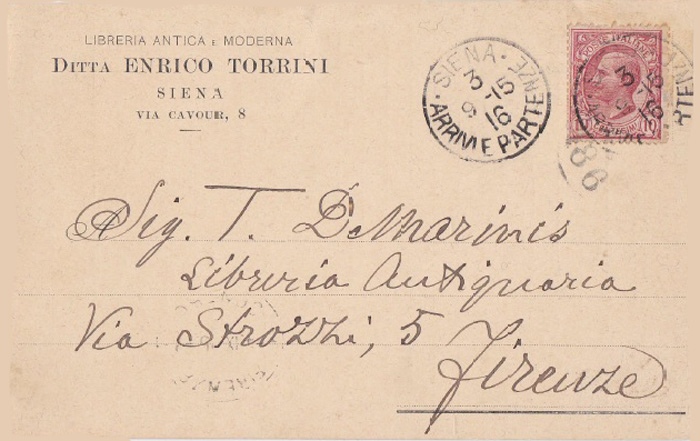 LIBRERIA ANTICA E MODERNA
DITTA ENRICO TORRINI
SIENA
VIA CAVOUR, 8
SIENA
ARRIVI E PARTENZE
3-5
9 16
POSTE ITALIANE
10
86
Sig. T. DeMarinis
Libreria Antiquaria
Via Strozzi, 5
Firenze